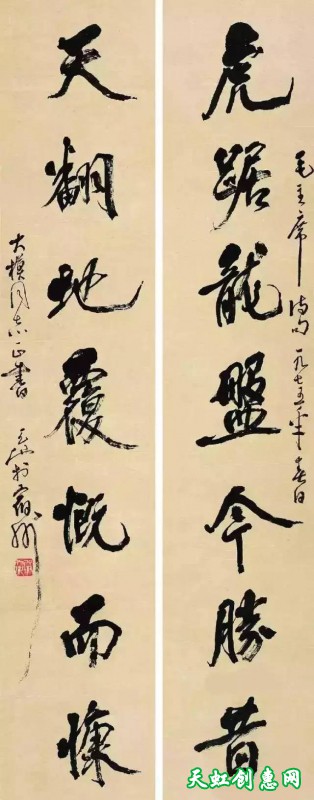 虎踞龍盤今勝昔
毛主席诗句 一九七五年春日
天翻地覆慨而慷
大模同志正書
天虹创惠网